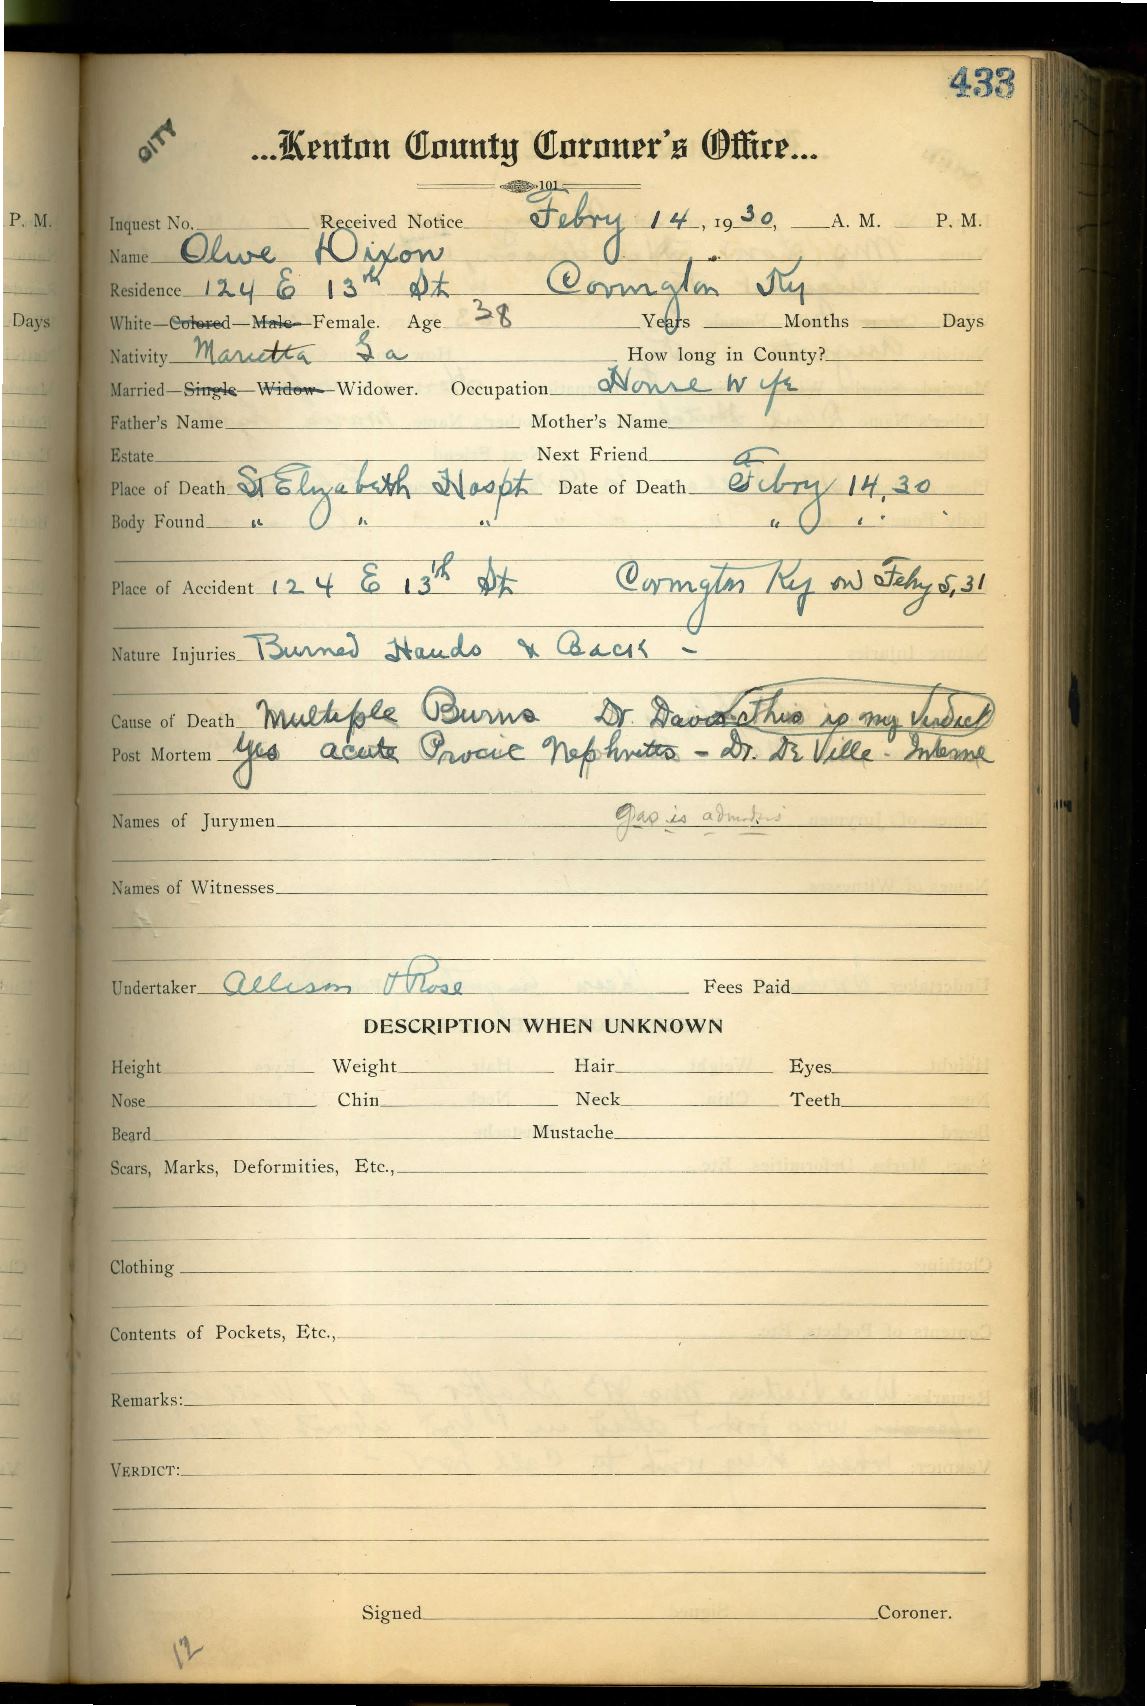 433
CITY
...Kenton County Coroner's Office...
101
P. M.
Inquest No. Received Notice Febry 14, 1930, A. M. P. M.
Name Olive Dixon
Residence 124 E 13th St Covington Ky
Days
White—Colored—Male—Female. Age 38 Years Months Days
Nativity Marietta Ga How long in County?
Married—Single—Widow—Widower. Occupation House Wife
Father's Name Mother's Name
Estate Next Friend
Place of Death St Elizabeth Hospt Date of Death Febry 14, 30
Body Found " " " " " "
Place of Accident 124 E 13th St Covington Ky on Feby 5, 31
Nature Injuries Burned Hands & Back -
Cause of Death Multiple Burns Dr. Davis This is my Verdict
Post Mortem Yes acute Nephritis - Dr. De Ville - Interne
Names of Jurymen Gas is
Names of Witnesses
Undertaker Allison & Rose Fees Paid
DESCRIPTION WHEN UNKNOWN
Height Weight Hair Eyes
Nose Chin Neck Teeth
Beard Mustache
Scars, Marks, Deformities, Etc.,
Clothing
Contents of Pockets, Etc.,
Remarks:
VERDICT:
Signed Coroner.
12